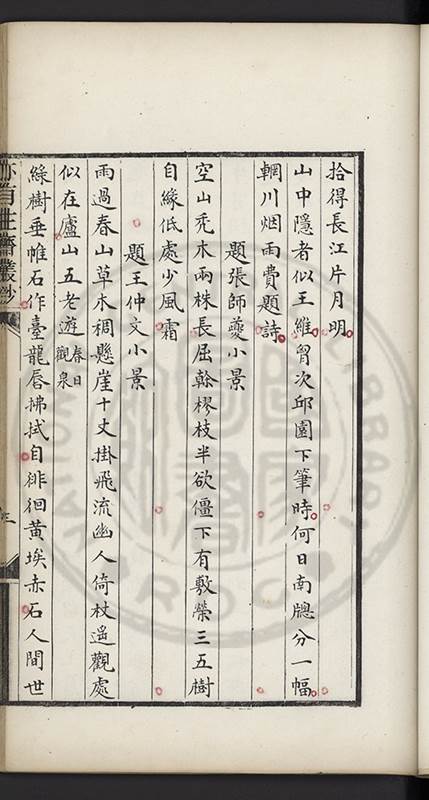 拾得長江片月明
山中隱者似王維胷次邱園下筆時何日南牕分一幅
輞川烟雨費題詩
題張師夔小景
空山禿木兩株長屈榦樛枝半欲僵下有敷榮三五樹
自緣低處少風霜
題王仲文小景
雨過春山草木稠懸崖十丈掛飛流幽人倚杖遥觀處
似在廬山五老遊春日觀泉
綠樹垂帷石作臺龍唇拂拭自徘徊黃埃赤石人間世
亦有生齋叢鈔